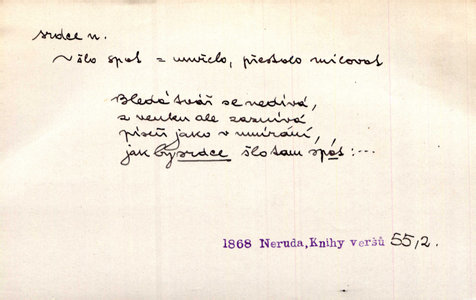 srdce n.
~ šlo spat = umřelo, přestalo milovat
Bledá tvář se nedívá,
z venku ale zaznívá
píseň jako v umírání,
jak by srdce šlo tam spát: ...
1868 Neruda, Knihy veršů 55,2.